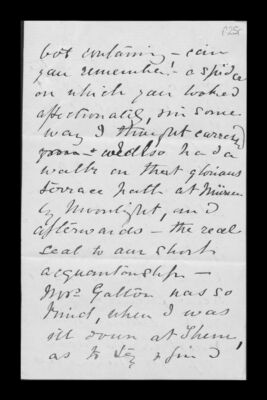 but containing – can
you remember! a spider
on which you looked
affectionately, in some
way I thought
walk on that glorious
terrace path at Mürren
by Moonlight, and
afterwards – the real
seal to our short
acquaintanceship –
Mrs Galton was so
kind, when I was
ill down at Thun,
as to try & find